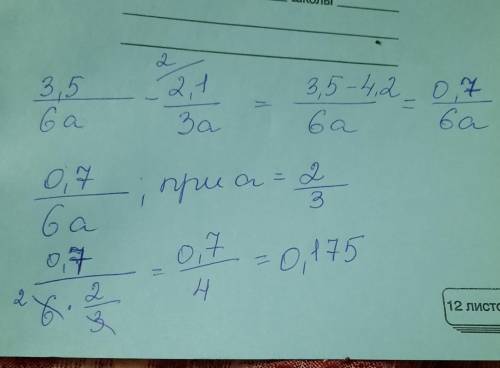 школы
3,5/6a - 2,1/3a = 3,5-4,2/6a = 0,7/6a
2
0,7/6a ; при a = 2/3
0,7/6·2/3 = 0,7/4 = 0,175
2
12 листо